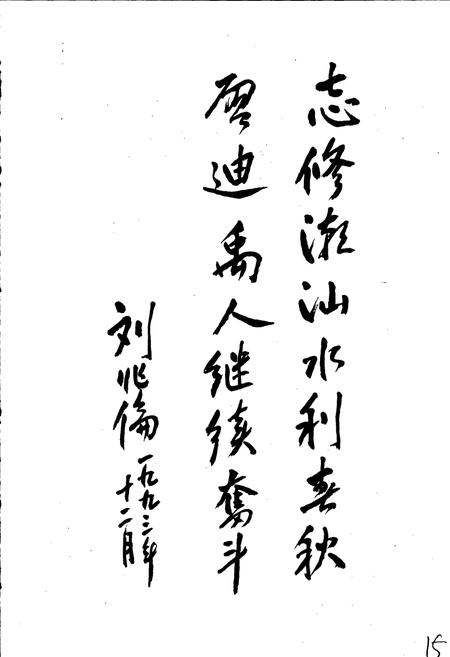 志修潮汕水利春秋
启迪禹人继续奋斗
刘兆倫
一九九三年
十二月
15